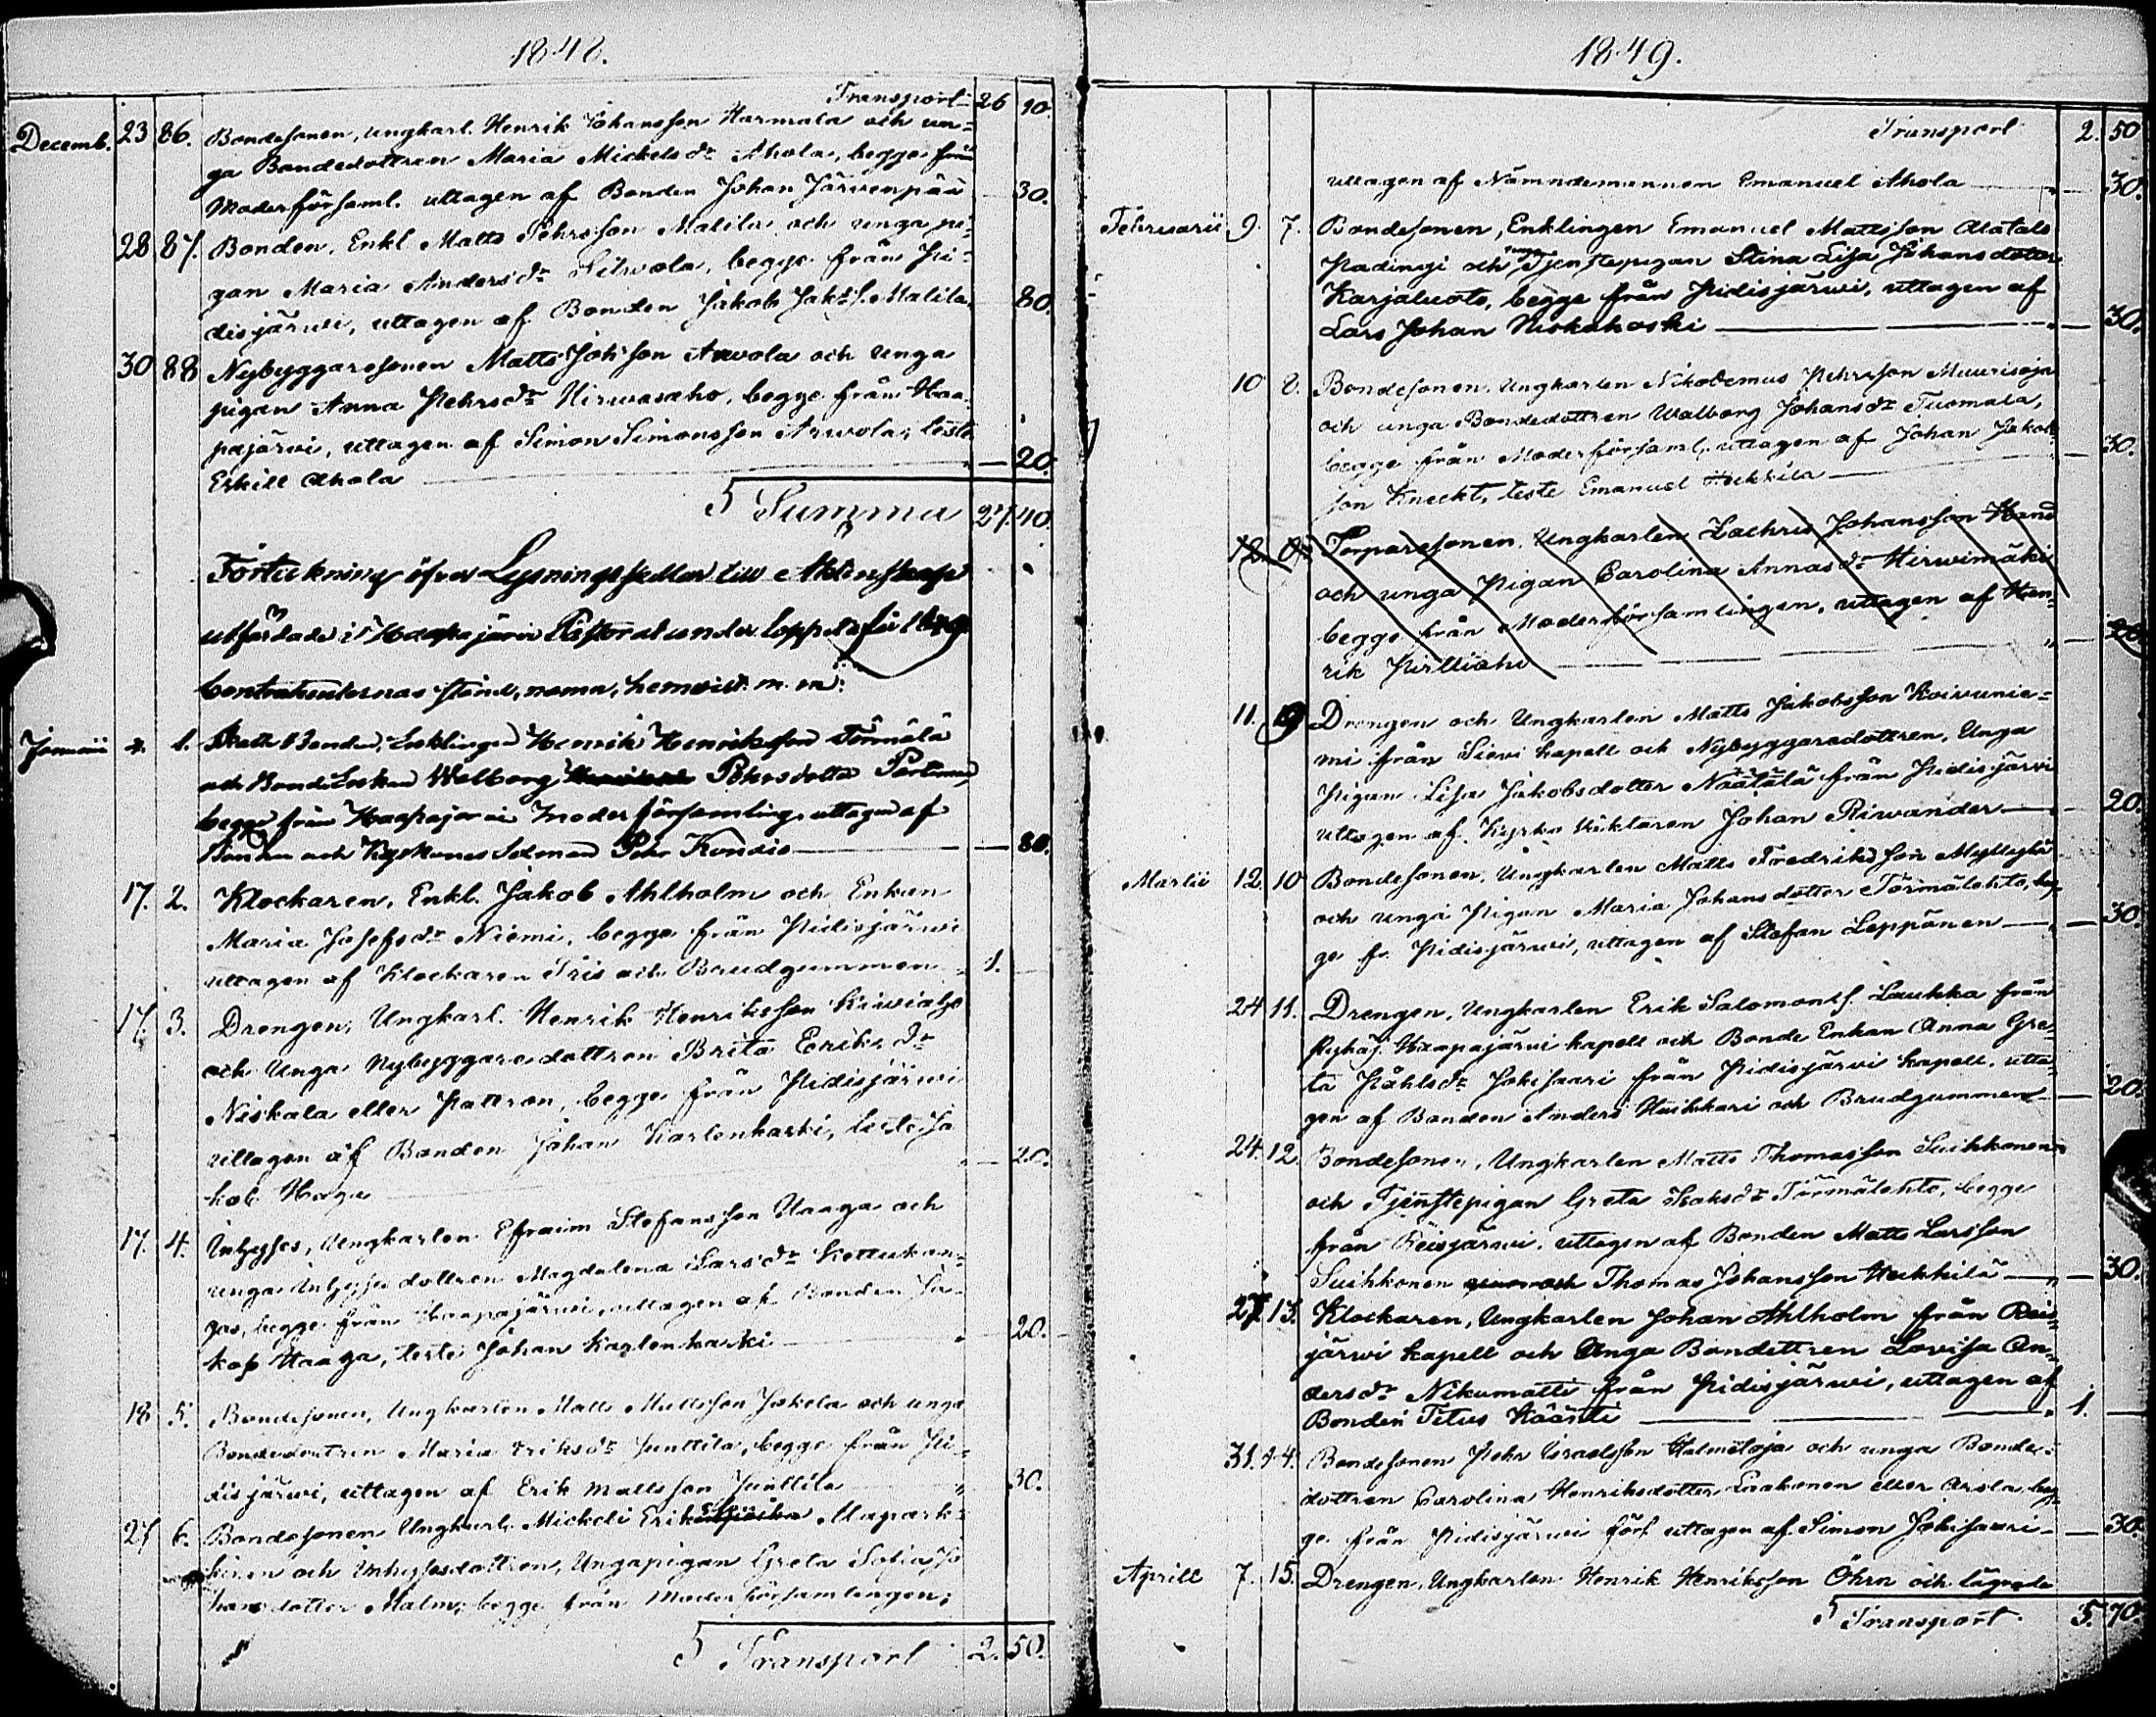 1848.
Transport 26 10.
Decemb. 23 86. Bondesonen, ungkarl. Henrik Johansson Harmala och un=
ga Bondedottren Maria Mickelsdr Ahola, begge från
Moderförsaml. uttagen af Bonden Johan Järvenpää 30.
28 87. Bonden, Enkl Matts Pehrsson Malila och unga pi=
gan Maria Andersdr begge från Pi=
disjärvi, uttagen af Bonden Jakob Jaks. Malila. 80.
30 88 Nybyggaresonen Matts Johsson Arvola och unga
pigan Anna Pehrsdr Hirvasaho, begge från Haa=
pajärvi, uttagen af Simon Simonsson Arvola, teste
Erkill Ahola — 20.
Summa 27. 40.
Förtekning öfver Lysningssedlar till Äktenskap
utfärdade i Haapajärvi Pastorat under loppet af år
contrahenternas stånd, namn, hemvist m. m:
Januarii 1. Bonden, Enklingen Henrik Henriksson
och Bonde Enkan Walborg Pehrsdotter
begge från Haapajärvi Moderförsamling, uttagen af
Bonden och Kyrkones Sexman Pehr Kondio — 80.
17. 2. Klockaren, Enkl. Jakob Ahlholm och Enkan
Maria Josefsdr Niemi, begge från Pidisjärvi
uttagen af Klockaren och Brudgummen 1.
17. 3. Drengen, Ungkarl. Henrik Henriksson Kiviaho
och Unga Nybyggaredottren Brita Eriksdr
Niskala eller Pattron, begge från Pidisjärvi
uttagen af Bonden Johan Karlenkarki, teste Ja
kob Haga — 20.
17. 4. Inhyses, Ungkarlen Efraim Stefansson Haaga och
unga Inhysesdottren Magdalena Larsdr Kettukan=
gas, begge från Haapajärvi, uttagen af Bonden Ja=
kob Haaga, teste Johan Karlenkarki 20.
18 5. Bondesonen, Ungkarlen Matts Mattsson Jokela och unga
Bondedottren Maria Eriksdr Junttila, begge från Pi=
disjärvi, uttagen af Erik Mattsson Junttila 30.
27 6. Bondesonen Ungkarl. Mickel Eriksson
och Inhysesdottren, Ungapigan Greta Sofia Jo
hansdotter Malm, begge från Moderförsamlingen,
Transport 2. 50.
1849.
Transport 2. 50
uttagen af Nämndemannen Emanuel Ahola 30.
Februarii 9. 7. Bondesonen, Enklingen Emanuel Mattsson Alatalo
Padingi och unga Tjenstepigan Stina Lisa Johansdotter
Karjaluoto, begge från Pidisjärvi, uttagen af
Lars Johan Niskakoski — 30.
10 8. Bondesonen, Ungkarlen Nikodemus Pehrsson Muurisoja
och unga Bondedottren Walborg Johansdr Tuomala,
begge från Moderförsaml, uttagen af Johan Jakobs=
son Kneckt, teste Emanuel Heikkila — 30.
Torparesonen, Ungkarlen Zachris Johansson
och unga Pigan Carolina Annasdr Hirvimäki
begge från Moderförsamlingen, uttagen af Hen=
rik Pirttiaho — 20
11. 9 Drengen och Ungkarlen Matts Jakobsson Koivunie=
mi från Sievi kapell och Nybyggaredottren, Unga
Pigan Lisa Jakobsdotter Näätälä från Pidisjärvi
uttagen af Kyrko Väktaren Johan Rivander 20.
Martii 12. 10 Bondesonen, Ungkarlen Matts Fredriksson Myllylä
och unga Pigan Maria Johansdotter Törmälehto, beg=
ge fr. Pidisjärvi, uttagen af Stefan Leppänen — 30.
24 11. Drengen, Ungkarlen Erik Salomonss. Laukka från
Pyhäj. Haapajärvi kapell och Bonde Enkan Anna Gre=
ta Påhlsdr Jokisaari från Pidisjärvi kapell, utta=
gen af Bonden Anders och Brudgummen — 20.
24. 12. Bondesonen, Ungkarlen Matts Thomasson Suikkonen
och Tjenstepigan Greta Isaksdr Törmälehto, begge
från Reisjärvi, uttagen af Bonden Matts Larsson
Suikkonen och Thomas Johansson Heikkilä — 30.
27. 13. Klockaren, Ungkarlen Johan Ahlholm från Reis=
järvi kapell och Unga Bondettren Lovisa An=
dersdr Nikumatti från Pidisjärvi, uttagen af
Bonden Titus Kääntä — 1.
31. 14. Bondesonen Pehr Israelsson Halmetoja och unga Bonde=
dottren Carolina Henriksdotter Laakonen eller Arola, beg=
ge från Pidisjärvi förs uttagen af Simon Jokisaari — 30.
Aprill 7. 15. Drengen, Ungkarlen Henrik Henriksson Öhrn och lägrade
Transport 5. 70.